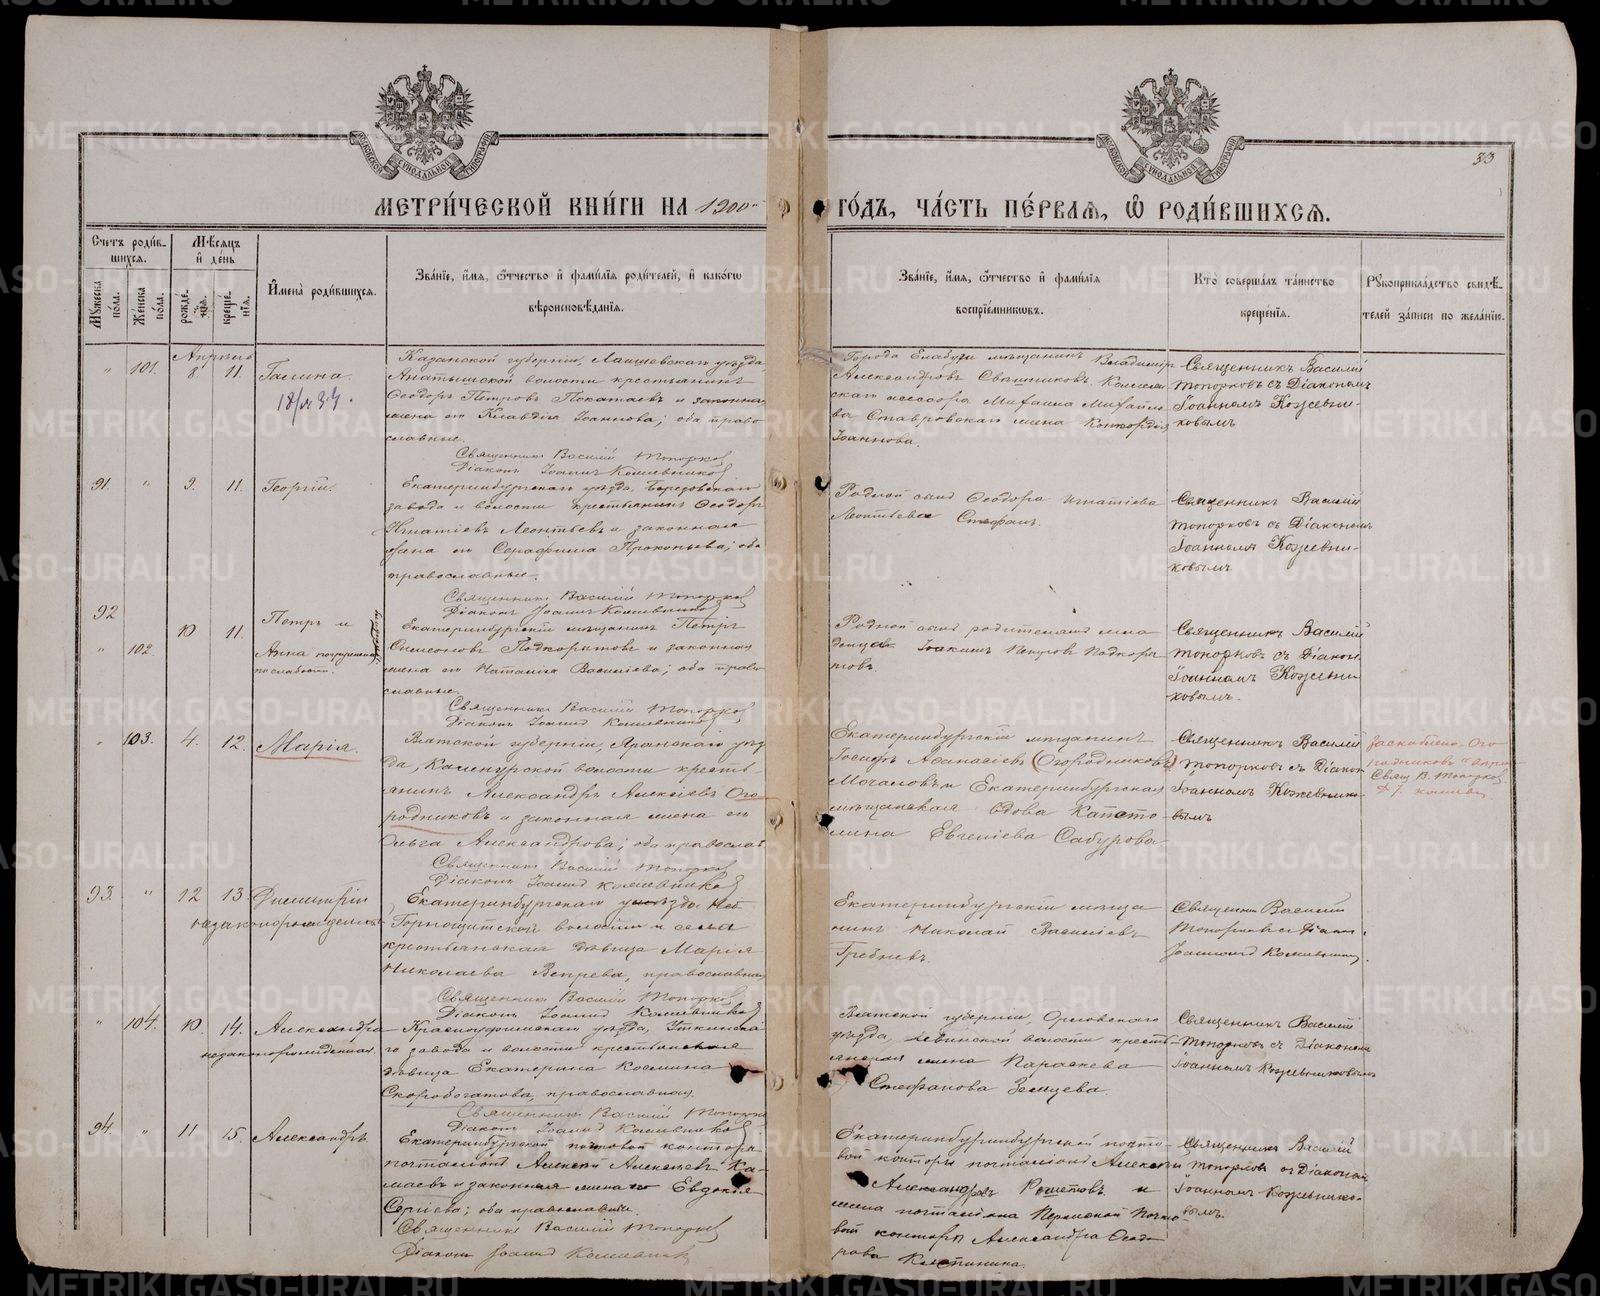 METRIKI.GASO-URAL.RU
МЕТРИ́ЧЕСКОЙ КНИ́ГИ НА 1900 ГО́ДЪ, ЧА́СТЬ ПЕ́РВАЯ, Ѡ РОДИ́ВШИХСЯ.
33
Счетъ родив-
шихся.
Мужеска пола.
Женска пола.
Мѣсяцъ и день
рожде-
нія.
креще-
нія.
Имена родившихся.
Званіе, имя, отчество и фамилія родителей, и какогѡ
вѣроисповѣданія.
Званіе, имя, отчество и фамилія
воспріемниковъ.
Кто совершалъ таинство
крещенія.
Рукоприкладство свидѣ-
телей записи по желанію.
Апрель
" 101. 8. 11. Галина.
18/IX 39.
Казанской губерніи, Лаишевскаго уѣзда,
волости крестьянинъ
Ѳеодоръ Петровъ и законная
жена его Клавдія Іоаннова; оба право-
славные.
Священникъ Василій Топорковъ
Діаконъ Іоаннъ Кожевниковъ
Города Елабуги мѣщанинъ Владимір
Александровъ Свѣшниковъ Коллеж-
скаго асессора Михаила Михайло-
ва Ставровскаго жена Конкордія
Іоаннова.
Священникъ Василій
Топорковъ съ Діакономъ
Іоанномъ Кожевни-
ковымъ
91. " 9. 11. Георгій.
Екатеринбургскаго уѣзда, Березовскаго
завода и волости крестьянинъ Ѳеодоръ
Игнатіевъ Леонтьевъ и законная
жена его Серафима Прокопьева; оба
православные.
Священникъ Василій Топорковъ
Діаконъ Іоаннъ Кожевниковъ
Родной сынъ Ѳеодора Игнатіева
Леонтьева Стефанъ.
Священникъ Василій
Топорковъ съ Діакономъ
Іоанномъ Кожевни-
ковымъ.
92
Петръ и
10 11.
" 102
Анна погружена
по слабости.
Екатеринбургскій мѣщанинъ Петръ
Симеоновъ Подкорытовъ и законная
жена его Наталія Василіева; оба право-
славные.
Священникъ Василій Топорковъ
Діаконъ Іоаннъ Кожевниковъ
Родной сынъ родителей мла-
денцевъ Іоакимъ Петровъ Подкоры-
товъ.
Священникъ Василій
Топорковъ съ Діакон.
Іоанномъ Кожевни-
ковымъ.
" 103. 4. 12. Марія.
Вятской губерніи, Яранскаго уѣз-
да, волости кресть-
янинъ Александръ Алексіевъ Ого-
родниковъ и законная жена его
Ольга Александрова; оба православ.
Священникъ Василій Топорковъ
Діаконъ Іоаннъ Кожевниковъ
Екатеринбургскій мѣщанинъ
Іосифъ Аѳанасіевъ (Огородниковъ)
Мочаловъ и Екатеринбургская
мѣщанская вдова Капето-
лина Евгеніева Сабурова
Священникъ Василій
Топорковъ съ Діакон
Іоанномъ Кожевнико-
вымъ
Ого-
родниковъ
Свящ. В. Топорковъ
93. " 12 13. Димитрій
незаконорожденный
Екатеринбургскаго уѣзда,
Горнощитской волости и села
крестьянская дѣвица Марія
Николаева Вепрева, православная
Священникъ Василій Топорковъ
Діаконъ Іоаннъ Кожевниковъ
Екатеринбургскій мѣща-
нинъ Николай Василіевъ
Гребневъ.
Священник Василій
Топорковъ съ Діако.
Іоанномъ Кожевников.
" 104. 10. 14. Александра
незаконорожденная.
Красноуфимскаго уѣзда, Уткинска-
го завода и волости крестьянская
дѣвица Екатерина Космина
Скоробогатова, православная.
Священникъ Василій Топорковъ
Діаконъ Іоаннъ Кожевниковъ
Вятской губерніи, Орловскаго
уѣзда, волости кресть-
янская жена Параскева
Стефанова Земцева.
Священникъ Василій
Топорковъ съ Діакономъ
Іоанномъ Кожевниковымъ
94. " 11. 15. Александръ.
Екатеринбургской почтовой конторы
почталіонъ Алексѣй Алексѣевъ Ка-
маевъ и законная жена его Евдокія
Сергіева; оба православные.
Священникъ Василій Топорковъ
Діаконъ Іоаннъ Кожевников
Екатеринбуринбургской почто-
вой конторы почталіонъ Алексѣй
Александровъ Решетовъ и
жена почталіона Пермской Почто-
вой конторы Александра Ѳеодо-
рова
Священникъ Василій
Топорковъ съ Діакономъ
Іоанномъ Кожевнико-
вымъ.